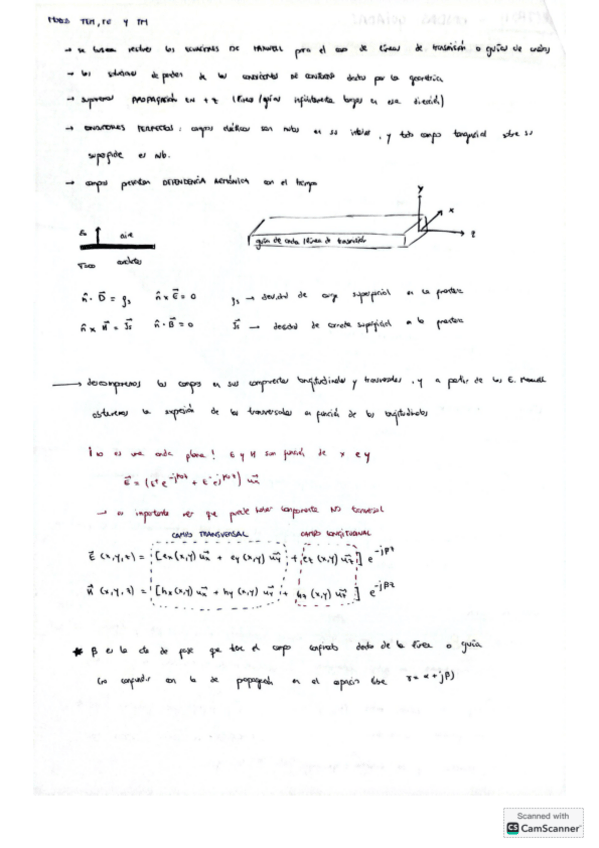 MODOS TEM, TE Y TM
→ se buscan resolver las ECUACIONES DE MAXWELL para el caso de líneas de transmisión o guías de ondas
→ las soluciones dependen de las CONDICIONES DE CONTORNO dadas por la geometría
→ suponemos PROPAGACIÓN EN +z (líneas/guías infinitamente largas en esa dirección)
→ CONDUCTORES PERFECTOS: campos eléctricos son nulos en su interior, y todo campo tangencial sobre su
superficie es nulo.
→ campos presentan DEPENDENCIA ARMÓNICA con el tiempo
y
x
z
aire
guía de onda / línea de transmisión
n̂ · D⃗ = ρs n̂ x E⃗ = 0 ρs → densidad de carga superficial en la frontera
n̂ x H⃗ = J⃗s n̂ · B⃗ = 0 J⃗s → densidad de corriente superficial en la frontera
→ descomponemos los campos en sus componentes longitudinales y transversales, y a partir de las E. Maxwell
obtenemos la expresión de los transversales en función de los longitudinales
¡no es una onda plana! E y H son función de x e y
→ es importante ver que puede haber componente NO transversal
CAMPO TRANSVERSAL CAMPO LONGITUDINAL
E⃗ (x,y,z) = [ex(x,y) ux⃗ + ey(x,y) uy⃗ + ez(x,y) uz⃗] e^-jβz
H⃗ (x,y,z) = [hx(x,y) ux⃗ + hy(x,y) uy⃗ + hz(x,y) uz⃗] e^-jβz
* β es la cte de fase que tiene el campo confinado dentro de la línea o guía
(no confundir con la de propagación en el espacio libre γ = α + jβ)
Scanned with
CS CamScanner